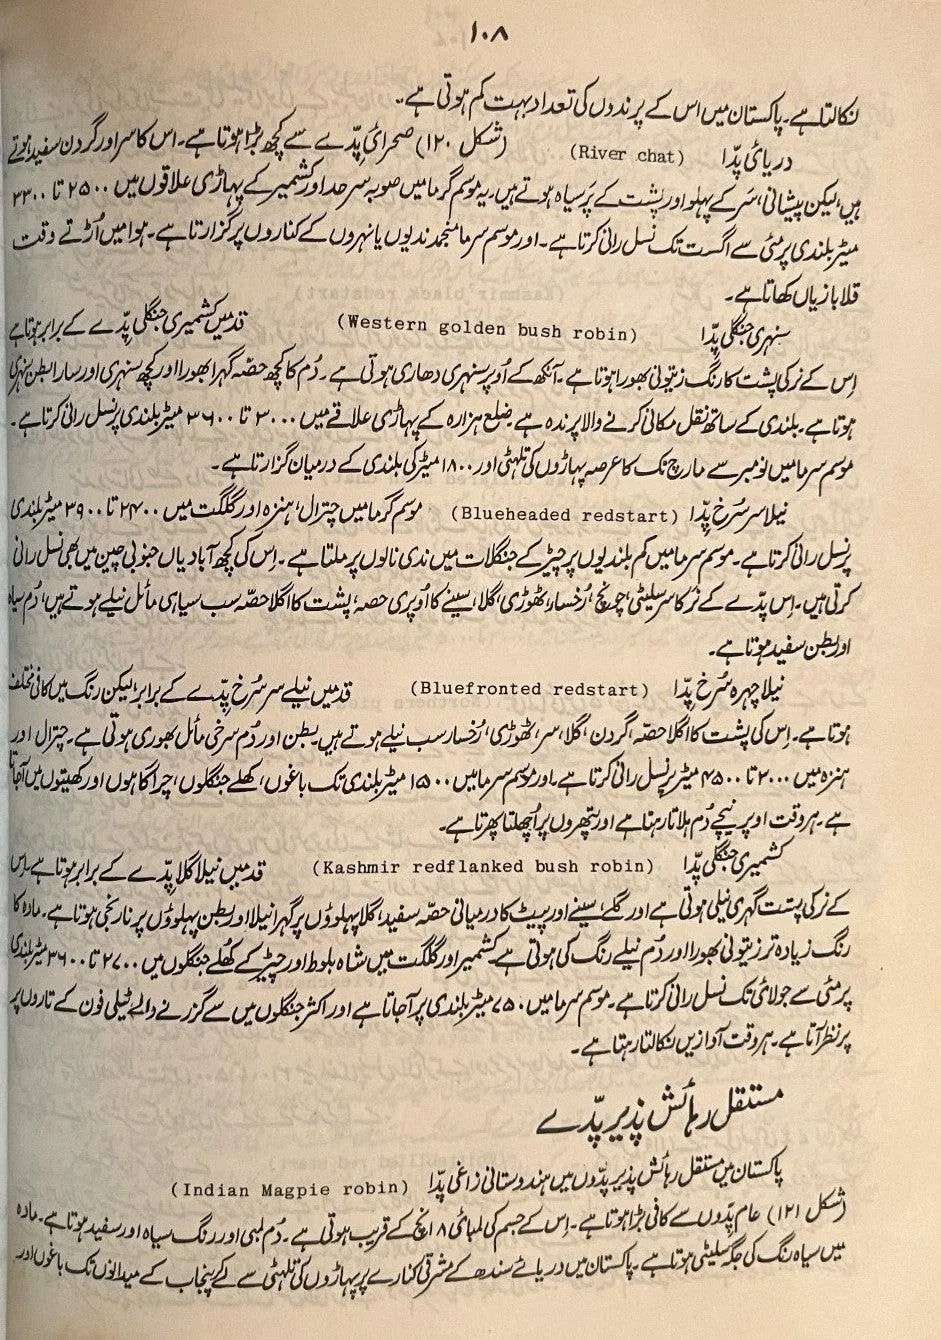 ۱۰۸
نکالتا ہے۔ پاکستان میں اس کے پرندوں کی تعداد بہت کم ہوتی ہے۔
دریائی پدّا (River chat) (شکل ۱۲۰) صحرائی پدّے سے کچھ بڑا ہوتا ہے۔ اس کا سر اور گردن سفید ہوتے
ہیں، لیکن پیشانی، سَر کے پہلو اور پشت کے پَر سیاہ ہوتے ہیں۔ یہ موسم گرما میں صوبہ سرحد اور کشمیر کے پہاڑی علاقوں میں ۲۵۰۰ تا ۳۳۰۰
میٹر بلندی پر مئی سے اگست تک نسل رانی کرتا ہے۔ اور موسم سرما منجمد ندیوں یا نہروں کے کناروں پر گزارتا ہے۔ ہوا میں اُڑتے وقت
قلابازیاں کھاتا ہے۔
سنہری جنگلی پِدّا (Western golden bush robin) قد میں کشمیری جنگلی پِدّے کے برابر ہوتا ہے
اِس کے نر کی پشت کا رنگ زیتونی بھورا ہوتا ہے۔ آنکھ کے اُوپر سنہری دھاری ہوتی ہے۔ دُم کا کچھ حصّہ گہرا بھورا اور کچھ سنہری اور سارا بطن سنہری
ہوتا ہے۔ بلندی کے ساتھ نقل مکانی کرنے والا پرندہ ہے۔ ضلع ہزارہ کے پہاڑی علاقے میں ۳۰۰۰ تا ۳۶۰۰ میٹر بلندی پر نسل رانی کرتا ہے۔
موسم سرما میں نومبر سے مارچ تک کا عرصہ پہاڑوں کی تلہٹی اور ۱۸۰۰ میٹر کی بلندی کے درمیان گزارتا ہے۔
نیلا سر سُرخ پِدّا (Blueheaded redstart) موسم گرما میں چترال، ہنزہ اور گلگت میں ۲۴۰۰ تا ۳۹۰۰ میٹر بلندی
پر نسل رانی کرتا ہے۔ موسم سرما میں کم بلندیوں پر چیڑ کے جنگلات میں ندی نالوں پر ملتا ہے۔ اِس کی کچھ آبادیاں جنوبی چین میں بھی نسل رانی
کرتی ہیں۔ اِس پدّے کے نر کا سر سلیٹی، چونچ، رُخسار، ٹھوڑی، گلا، سینے کا اُوپری حصہ، پشت کا اگلا حصّہ سب سیاہی مائل نیلے ہوتے ہیں، دُم سیاہ
اور بطن سفید ہوتا ہے۔
نیلا چہرہ سُرخ پِدّا (Bluefronted redstart) قد میں نیلے سر سُرخ پِدّے کے برابر لیکن رنگ میں کافی مختلف
ہوتا ہے۔ اِس کی پشت کا اگلا حصّہ، گردن، گلا، سر، ٹھوڑی، رُخسار سب نیلے ہوتے ہیں۔ بطن اور دُم سرخی مائل بھوری ہوتی ہے۔ چترال اور
ہنزہ میں ۳۰۰۰ تا ۴۵۰۰ میٹر پر نسل رانی کرتا ہے۔ اور موسم سرما میں ۱۵۰۰ میٹر بلندی تک باغوں، کھلے جنگلوں، چراگاہوں اور کھیتوں میں آجاتا
ہے۔ ہر وقت اوپر نیچے دُم ہلاتا رہتا ہے اور پتھروں پر اُچھلتا پھرتا ہے۔
کشمیری جنگلی پدّا (Kashmir redflanked bush robin) قد میں نیلا گلا پِدّے کے برابر ہوتا ہے۔ اِس
کے نر کی پشت گہری نیلی ہوتی ہے اور گلے، سینے اور پیٹ کا درمیانی حصّہ سفید، گلا پہلوؤں پر گہرا نیلا اور بطن پہلوؤں پر نارنجی ہوتا ہے۔ مادہ کا
رنگ زیادہ تر زیتونی بھورا اور دُم نیلے رنگ کی ہوتی ہے۔ کشمیر اور گلگت میں شاہ بلوط اور چیڑ کے کُھلے جنگلوں میں ۲۷۰۰ تا ۳۶۰۰ میٹر بلندی
پر مئی سے جولائی تک نسل رانی کرتا ہے۔ موسم سرما میں ۷۵۰ میٹر بلندی پر آجاتا ہے اور اکثر جنگلوں میں سے گزرنے والے ٹیلی فون کے تاروں پر
پر نظر آتا ہے۔ ہر وقت آوازیں نکالتا رہتا ہے۔
مستقل رہائش پذیر پدّے
پاکستان میں مستقل رہائش پذیر پدّوں میں ہندوستانی زاغی پدّا (Indian Magpie robin)
(شکل ۱۲۱) عام پدّوں سے کافی بڑا ہوتا ہے۔ اِس کے جسم کی لمبائی ۸ انچ کے قریب ہوتی ہے۔ دُم لمبی اور رنگ سیاہ اور سفید ہوتا ہے۔ مادہ
میں سیاہ رنگ کی جگہ سلیٹی ہوتا ہے۔ پاکستان میں دریائے سندھ کے مشرقی کنارے پر پہاڑوں کی تلہٹی سے لے کے پنجاب کے میدانوں تک باغوں اور